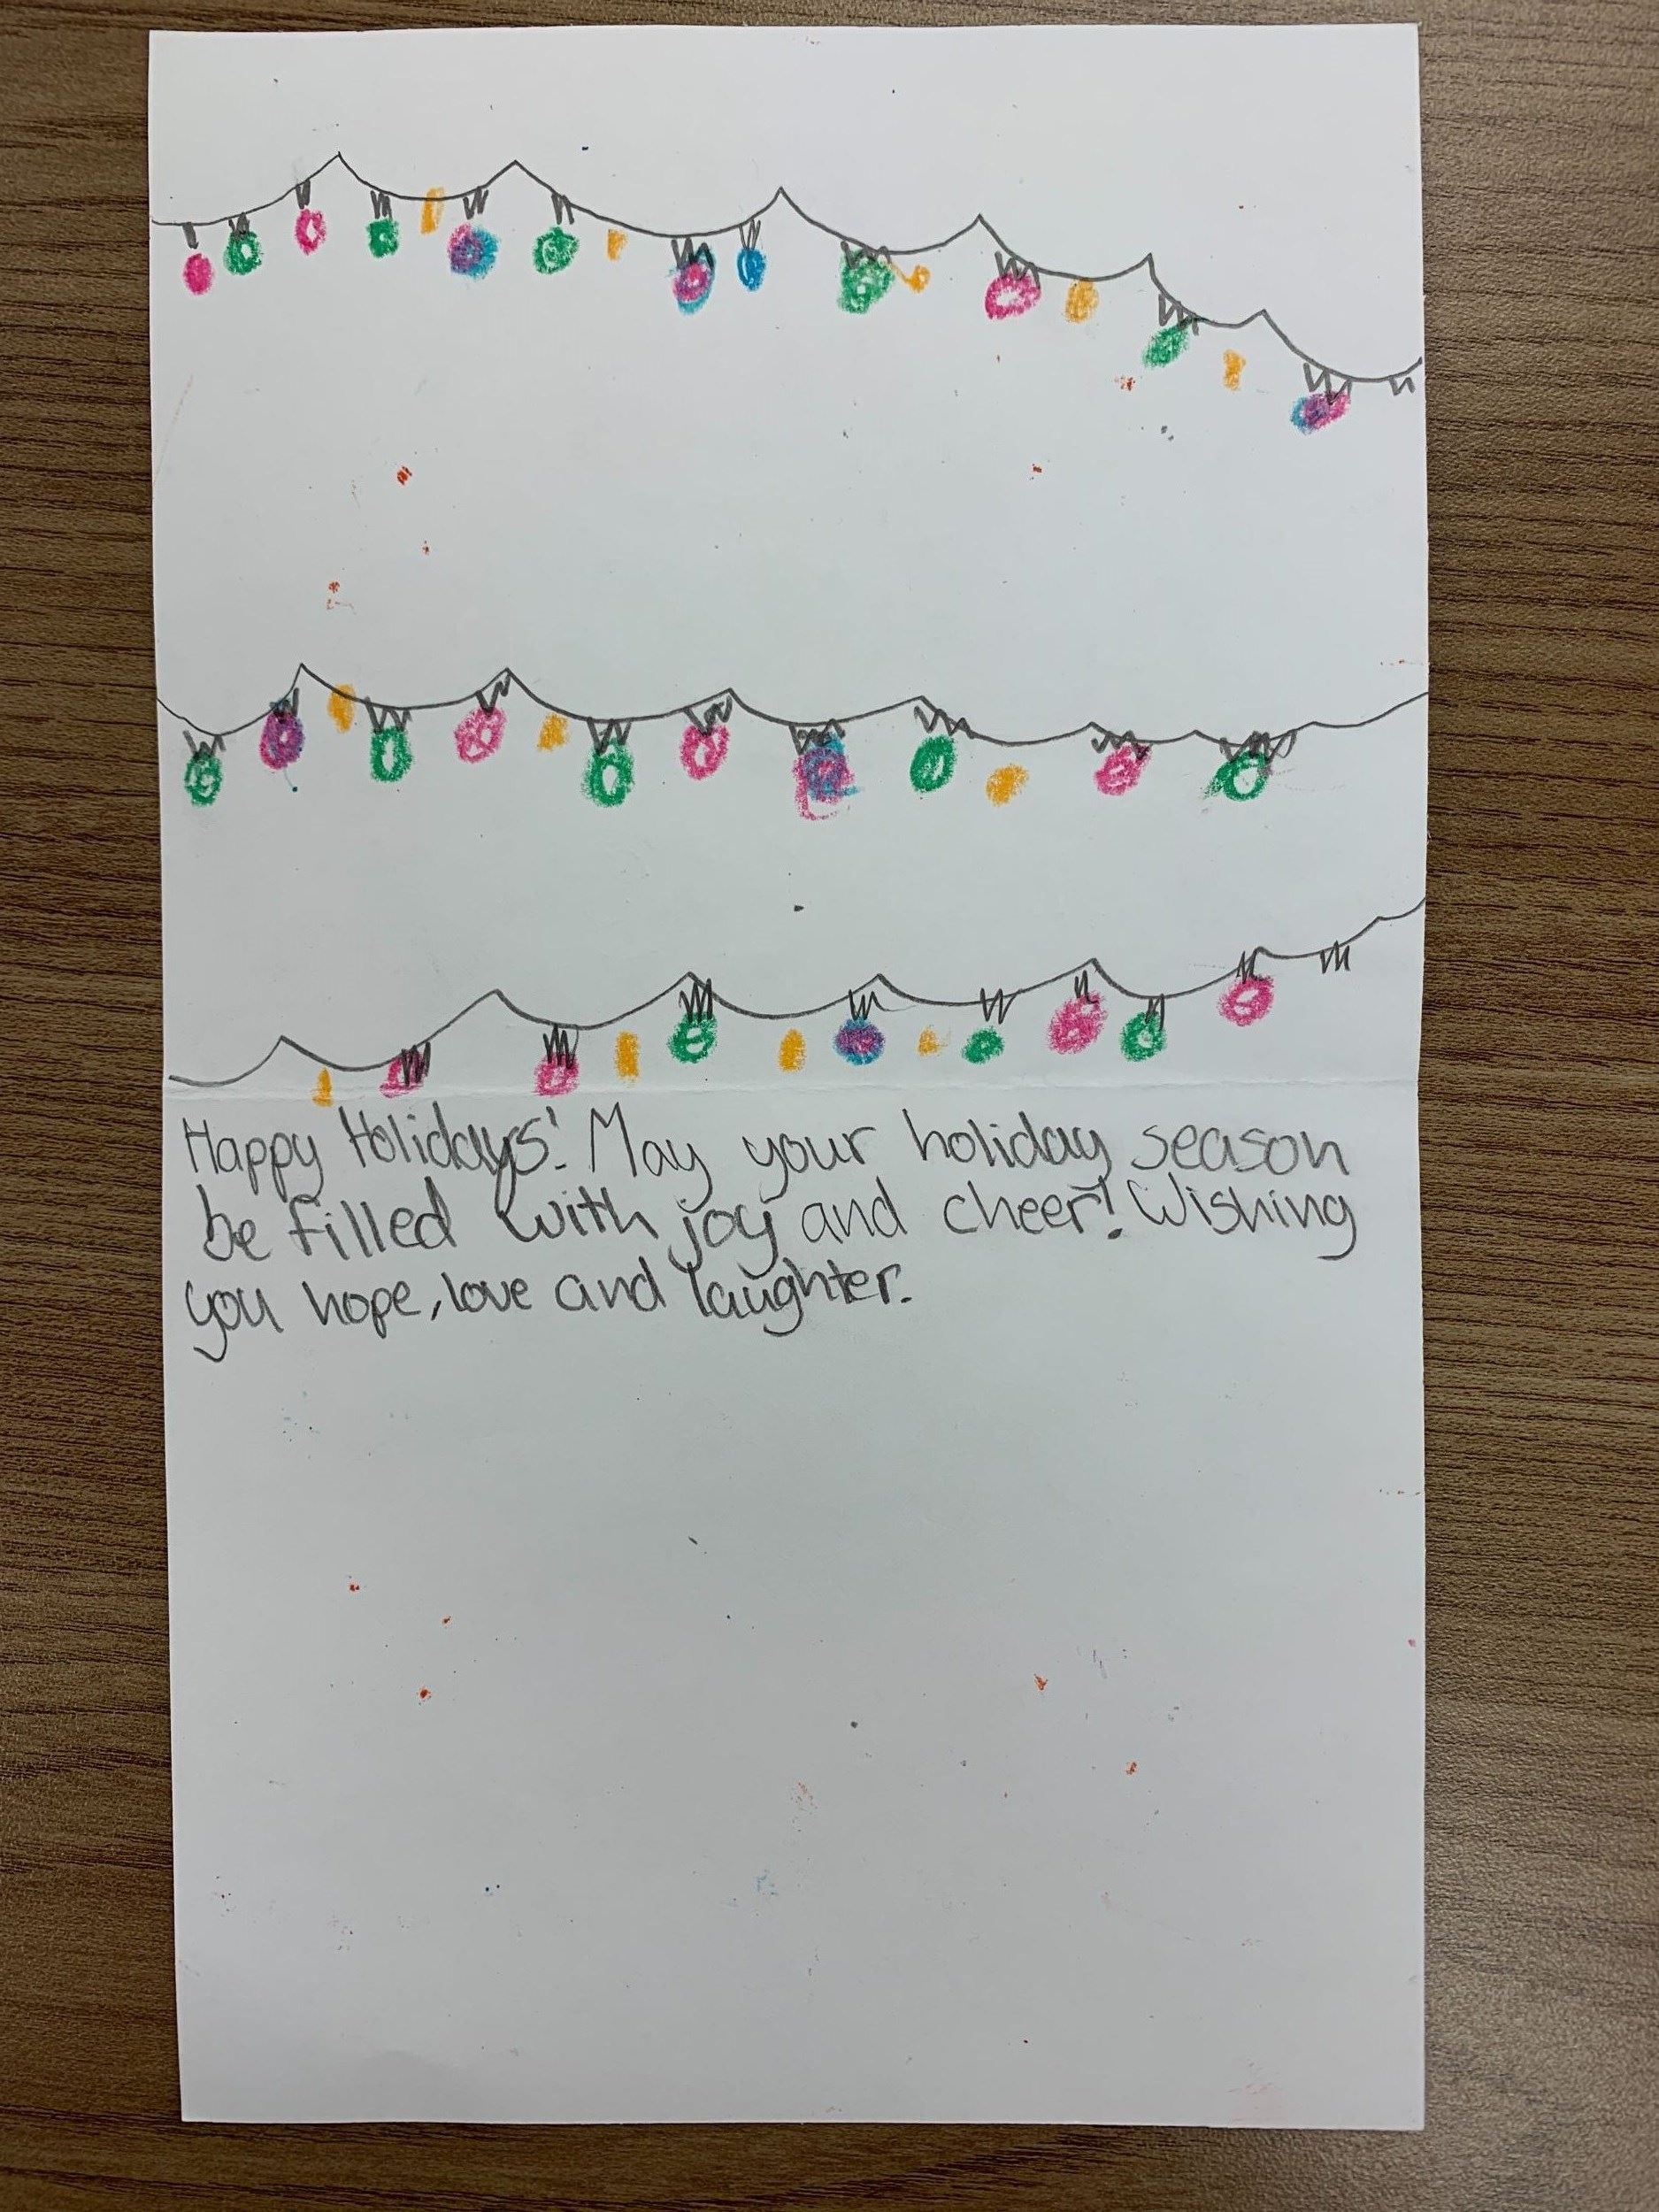 Happy Holidays! May your holiday season
be filled with joy and cheer! Wishing
you hope, love and laughter.